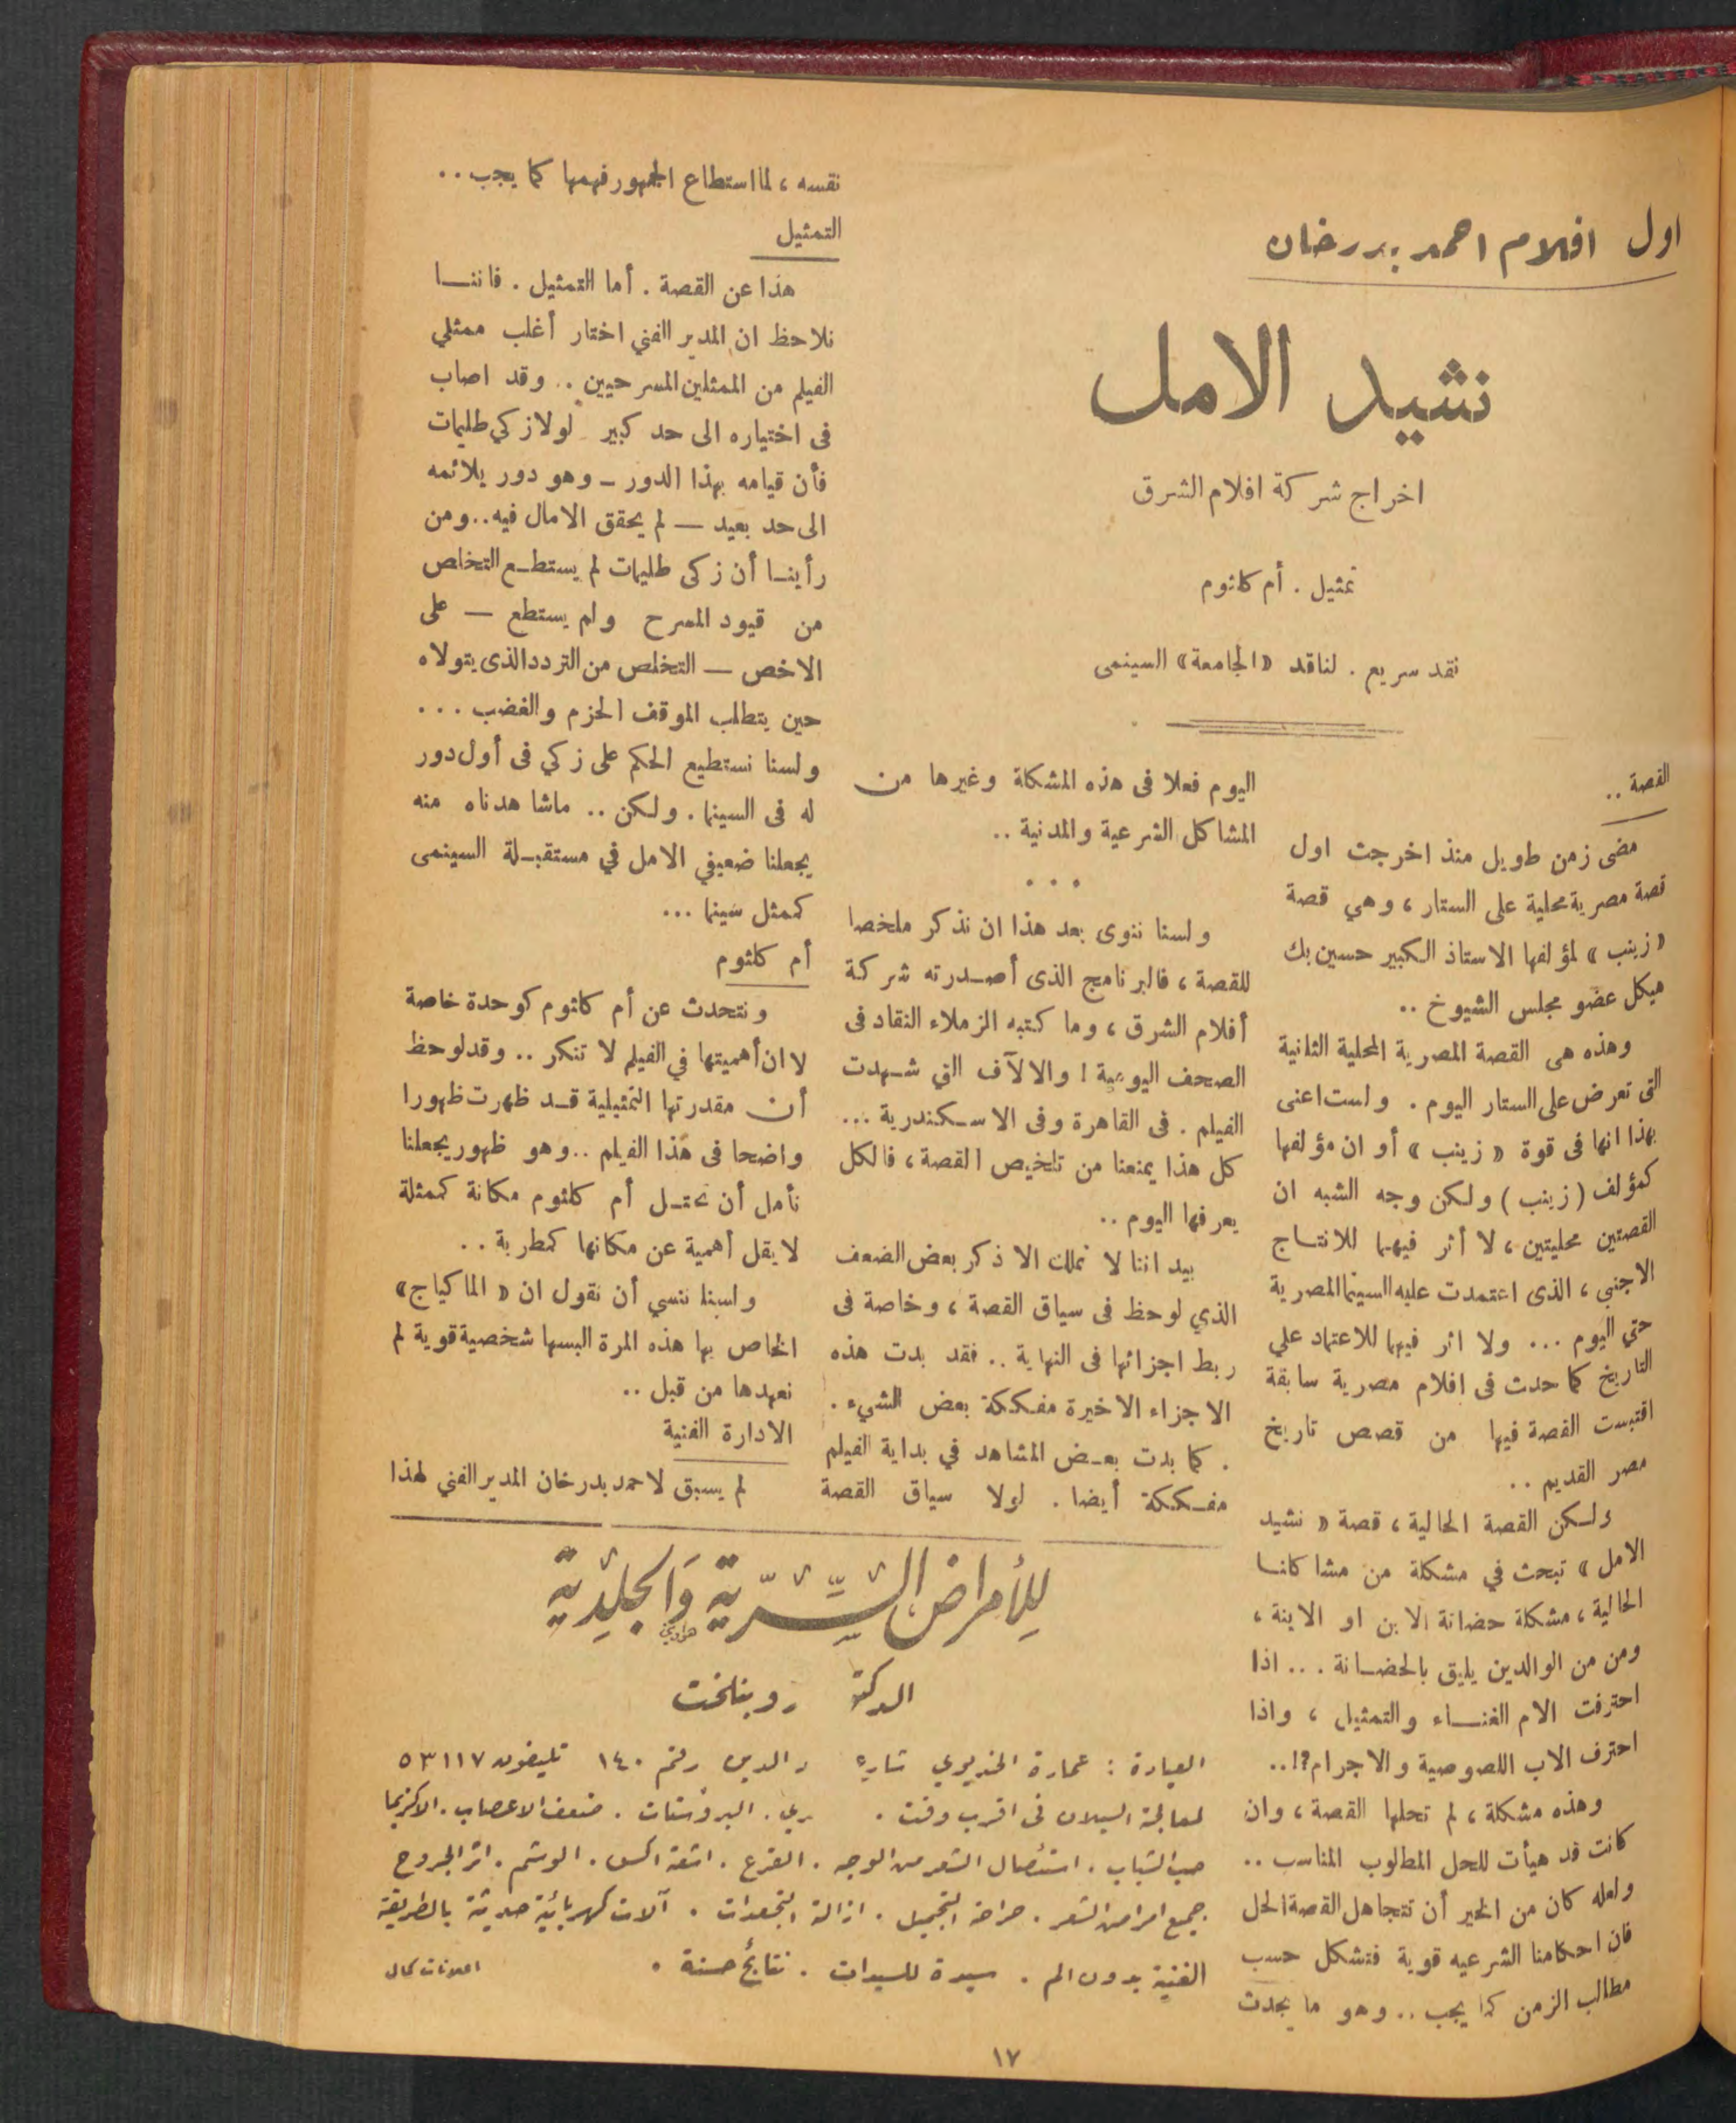 اول افلام احمد بدرخان
نشيد الامل
اخراج شركة افلام الشرق
تمثيل . أم كلثوم
نقد سريع . لناقد «الجامعة» السينمى
القصة ..
مضى زمن طويل منذ اخرجت اول
قصة مصرية محلية على الستار ، وهي قصة
«زينب» لمؤلفها الاستاذ الكبير حسين بك
هيكل عضو مجلس الشيوخ ..
وهذه هى القصة المصرية المحلية الثانية
التى تعرض على الستار اليوم . ولست اعنى
بهذا انها فى قوة «زينب» أو ان مؤلفها
كمؤلف (زينب) ولكن وجه الشبه ان
القصتين محليتين ، لا أثر فيهما للانتاج
الاجنبي ، الذى اعتمدت عليه السينما المصرية
حتي اليوم ... ولا اثر فيهما للاعتماد علي
التاريخ كما حدث فى افلام مصرية سابقة
اقتبست القصة فيها من قصص تاريخ
مصر القديم ..
ولكن القصة الحالية ، قصة «نشيد
الامل» تبحث في مشكلة من مشاكلنا
الحالية ، مشكلة حضانة الابن او الابنة ،
ومن من الوالدين يليق بالحضانة ... اذا
احترفت الام الغناء والتمثيل ، واذا
احترف الاب اللصوصية والاجرام؟!..
وهذه مشكلة ، لم تحلها القصة ، وان
كانت قد هيأت للحل المطلوب المناسب ..
ولعله كان من الخير أن تتجاهل القصة الحل
فان احكامنا الشرعيه قوية فتشكل حسب
مطالب الزمن كما يجب .. وهو ما يحدث
اليوم فعلا فى هذه المشكلة وغيرها من
المشاكل الشرعية والمدنية ..
. . .
ولسنا ننوى بعد هذا ان نذكر ملخصا
للقصة ، فالبرنامج الذى أصدرته شركة
أفلام الشرق ، وما كتبه الزملاء النقاد فى
الصحف اليومية ! والالآف التي شهدت
الفيلم . فى القاهرة وفى الاسكندرية ...
كل هذا يمنعنا من تلخيص القصة ، فالكل
يعرفها اليوم ..
بيد اننا لا نملك الا ذكر بعض الضعف
الذي لوحظ فى سياق القصة ، وخاصة فى
ربط اجزائها فى النهاية .. فقد بدت هذه
الاجزاء الاخيرة مفككة بعض الشيء .
. كما بدت بعض المشاهد في بداية الفيلم
مفككة أيضا . لولا سياق القصة
نفسه ، لما استطاع الجمهور فهمها كما يجب ..
التمثيل
هذا عن القصة . أما التمثيل . فاننا
نلاحظ ان المدير الفني اختار أغلب ممثلي
الفيلم من الممثلين المسرحيين .. وقد اصاب
فى اختياره الى حد كبير لولا زكي طليمات
فأن قيامه بهذا الدور – وهو دور يلائمه
الى حد بعيد – لم يحقق الامال فيه .. ومن
رأينا أن زكى طليمات لم يستطع التخلص
من قيود المسرح ولم يستطع – على
الاخص – التخلص من التردد الذى يتولاه
حين يتطلب الموقف الحزم والغضب ...
ولسنا نستطيع الحكم على زكي فى أول دور
له فى السينما . ولكن .. ماشاهدناه منه
يجعلنا ضعيفي الامل في مستقبلة السينمى
كممثل سينما ...
أم كلثوم
ونتحدث عن أم كلثوم كوحدة خاصة
لا ان أهميتها في الفيلم لا تنكر .. وقد لوحظ
أن مقدرتها التمثيلية قد ظهرت ظهورا
واضحا فى هذا الفيلم .. وهو ظهور يجعلنا
نأمل أن تحتل أم كلثوم مكانة كممثلة
لا يقل أهمية عن مكانها كمطربة ..
ولسنا ننسي أن نقول ان «الماكياج»
الخاص بها هذه المرة البسها شخصية قوية لم
نعهدها من قبل ..
الادارة الفنية
لم يسبق لاحمد بدرخان المدير الفني لهذا
للأمراض السّرّيّة وَالجلديّة
الدكتور روبنلخت
العيادة : عمارة الخديوي شارع الدين رقم ١٤٠ تليفون ٥٣١١٧
لمعالجة السيلان فى اقرب وقت . البروستات . ضعف الاعصاب . الاكزيما
حب الشباب . استئصال الشعر من الوجه . القرع . اشعة اكس . الوشم . اثر الجروح
جميع امراض الشعر . جراحة التجميل . ازالة التجعدات . آلات كهربائية حديثة بالطريقة
الفنية بدون الم . سيدة للسيدات . نتائج حسنة .
اعلانات كمال
١٧